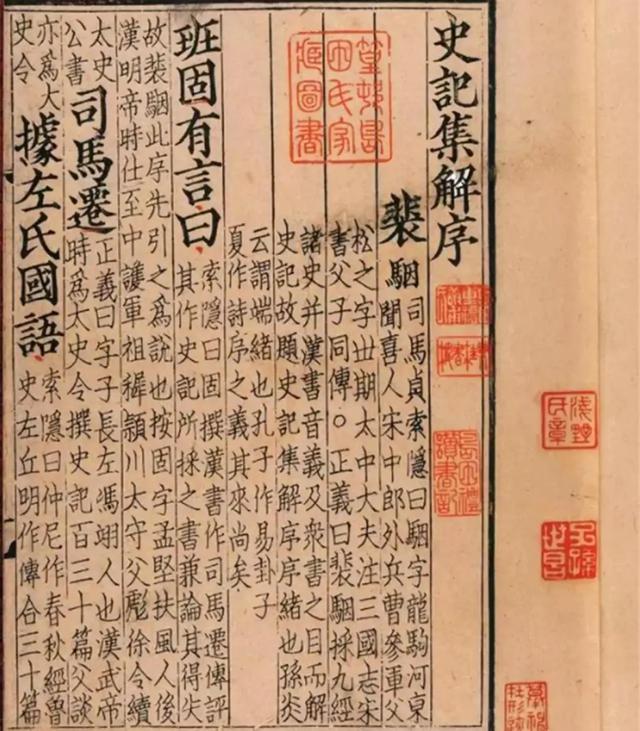 史記集解序
裴駰
司馬貞索隱曰駰字龍駒河東
聞喜人宋中郎外兵曹參軍父
松之字丗期太中大夫注三國志宋
書父子同傳○正義曰裴駰採九經
諸史并漢書音義及衆書之目而解
史記故題史記集解序序緒也孫炎
云謂端緒也孔子作易卦子
夏作詩序之義其來尚矣
班固有言曰
索隱曰固撰漢書作司馬遷傳評
其作史記所採之書兼論其得失
故裴駰此序先引之爲說也按固字孟堅扶風人後
漢明帝時仕至中護軍祖穉潁川太守父彪徐令續
太史
公書
司馬遷
正義曰字子長左馮翊人也漢武帝
時爲太史令撰史記百三十篇父談
亦爲太
史令
據左氏國語
索隱曰仲尼作春秋經魯
史左丘明作傳合三十篇
篁邨島
田氏家
藏圖書